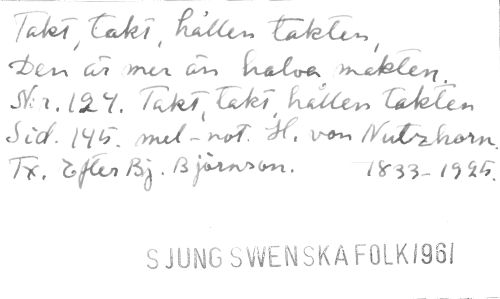 Takt, takt, hållen takten,
Den är mer än halva makten.
N:r. 127. Takt, takt, hållen takten
Sid. 145. mel-not. H. von Nutzhorn.
Tx. Efter Bj. Björnson. 1833-1925.
SJUNG SWENSKA FOLK 1961